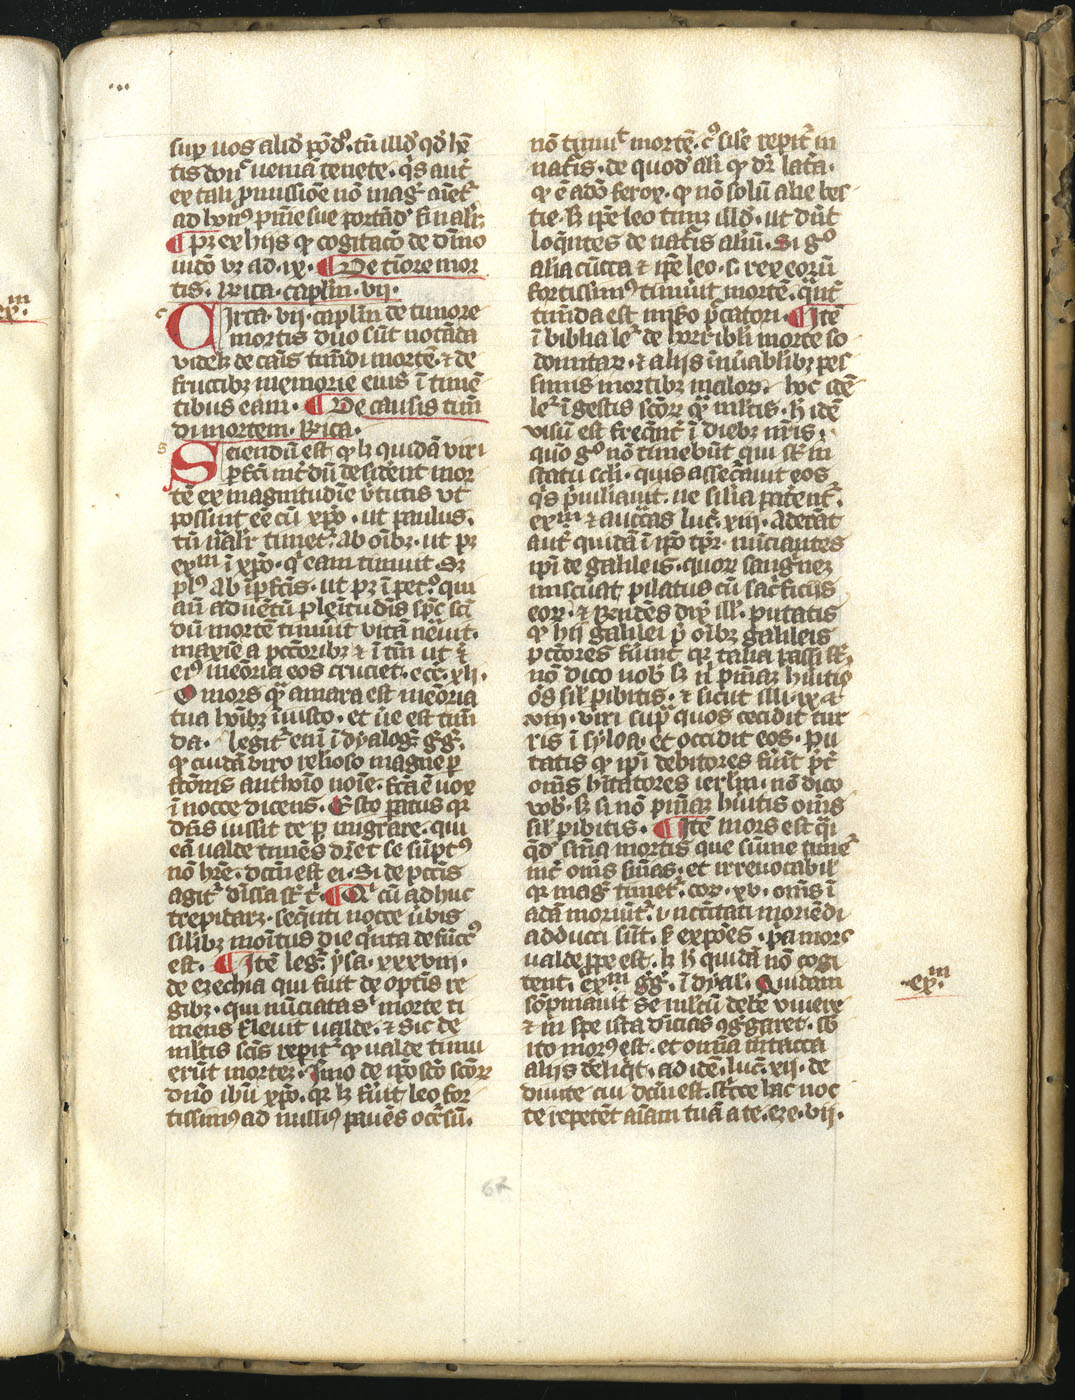 ...
sup uos aliqͦ pōdꝰ. tn̄ illd̓ qd̓ hē
tis donͨ ueniā tenete. qͥs aut̄
ex tali ꝓmissiōe nō mag̓ aīet̉
ad hoīꝰ
¶ pꝫ ex hijs ꝙ cogitacō de dīno
iudō vꝫ ad. ix. ¶ De tīore mor
tis. Rͥica. capl̓m. vij.
Circa. vij. capl̓m de timore
mortis duo sūt notāda
videlꝫ de causis timēdi mortē. ⁊ de
fructibꝫ memorie eius̉ ī timē
tibus eam. ¶ De causis timē
di mortem. Rͥica.
Sciendū est ꝙ lꝫ quidā viri
ꝑfcī int̓dū desid̓ent mor
tē ex magnitudīe v̓tutis vt
possint eē cū xp̄o. ut paulus.
tn̄ nālr̓ timet̉ ab oībꝫ. ut pꝫ
exᵐ ī xp̄o. qͥ eam timuit. Sꝫ
pl̓ꝰ ab īꝑfcīs. ut pꝫ ī pet̓ꝰ. qui
an̄ aduētū plenitudīs sp̄c sci
dū mortē timuit vitā neḡuit.
maxīe a pctōribꝫ ⁊ ī tm̄ ut ī
eiꝰ meōria eos cruciet. eccͥ. xli.
O mors qͣ amara est meōria
tua hoībꝫ īiusto. et ūe est timē
da. legit̉ enī ī dyalog̉. gg̉.
ꝙ cuidā viro relioso magne ꝑ
fctōnis anthoīo noīe. fcā ē uox
ī nocte dicens. Esto paratus qꝛ
dn̄s iussit te ꝑ migrare. qui
cū ualde timēs dr̄et se sūptꝰ
nō hr̄e. dcm̄ est ei. Si de pctīs
agit̉ dīssa st̄ tͥ. ¶ Qͥ cū adhuc
trepidarꝫ. seqn̄ti nocte v̓bis
silibꝫ monitus die qͥnta defūctꝰ
est. ¶ Itē leg̉. ysa. xxxviij.
de ezechia qui fuit de optīs re
gibꝫ. qui nūciata sͥ morte ti
mens fleuit ualde. ⁊ sic de
ml̓tis scīs reꝑit̉ ꝙ ualde timu
erūt mortē. Imo de ip̄o scō scōꝝ
dn̄o ihū xp̄o. qꝛ lꝫ fuīt leo for
tissimꝰ ad nulliꝰ pauēs occ̓sū.
nō timuiͭ mortē. cͥꝰ sile reꝑit̉ in
nat̓is. de quod̓ ali ꝙ dr̄
ꝙ ē adō ferox. ꝙ nō solū alie bes
tie. sꝫ ip̄e leo timꝫ illd̓. ut dn̄t
loqn̄tes de nat̓is aliū. Si gͦ
alia cūcta ⁊ ip̄e leo. s. rex eorū
fortissimꝰ timuit mortē.
timēda est miso pc̄atori. ¶ Itē
ī biblia le̓ de horribili morte so
domitaꝝ. ⁊ alijs īnūabl̓ibꝫ pes
simis mortibꝫ maloꝝ. hoc idē
le̓ ī gestis scōꝝ qͣ ml̓tis. hͦ idē
visū est freqn̄t̓ ī diebꝫ nr̄is.
quō gͦ nō timebūt qui st̄ in
statu scli. quis assec̓auit eos
qͥs pͥuiliauit. ne silia patent̉.
exᵐ ⁊ auctās luc̄. xiij. aderāt
aut̄ quidā ī ip̄o tp̄r. nūciantes
ip̄i de galileis. quoꝝ sangͥnēꝫ
miscuat̓ pilatus cū sac̓ficijs
eoꝝ. ⁊ rn̄dēs dix̉ ill̓. putatis
ꝙ hij galilei p̄ oībꝫ galileis
pctōres fūint qꝛ talia passi st̄.
nō dico uob̓ sꝫ nͥ pn̄iaꝫ hūitis
oēs sil̓ ꝑibitis. ⁊ sicut illi. ix. ⁊
viij. viri supͣ quos cecidit tur
ris ī syloa. et occidit eos. pu
tatis ꝙ ip̄i debitores fūīt p̄t̓
oms̄ hītatores ierlm̄. nō dico
vob̓. sꝫ si nō pn̄iaꝫ hūitis oms̄
sil̓ ꝑibitis. ¶ Itē mors est qͣi
qd̓ sma mortis que sūme time
nt̉ oms̄ smās. et irreuocabil̓
qꝛ mag̓ timet̉. coꝝ. xv. oms̄ ī
adā moriūt̉. i. nc̄citati moriēdi
adducti sūt. hͦ exp̄oēs. pͥa mors
ualde ꝓpe est. lꝫ lꝫ quidā nō cogi
tent. exᵐ gg̉. ī dyal̓. Quidam
sōpniauit se ml̓tū debē viuere
⁊ in spe ista dīcias ꝯg̉garet. sb̓
ito mor̓ꝰ est. et omīa intacta
alijs deliqͥt. ad idē. luc̄. xij. de
diuite cui dcm̄ est. stl̓te hac noc
te repetēt aīam tuā a te. eze. vij.
exᵐ.
exᵐ.
67